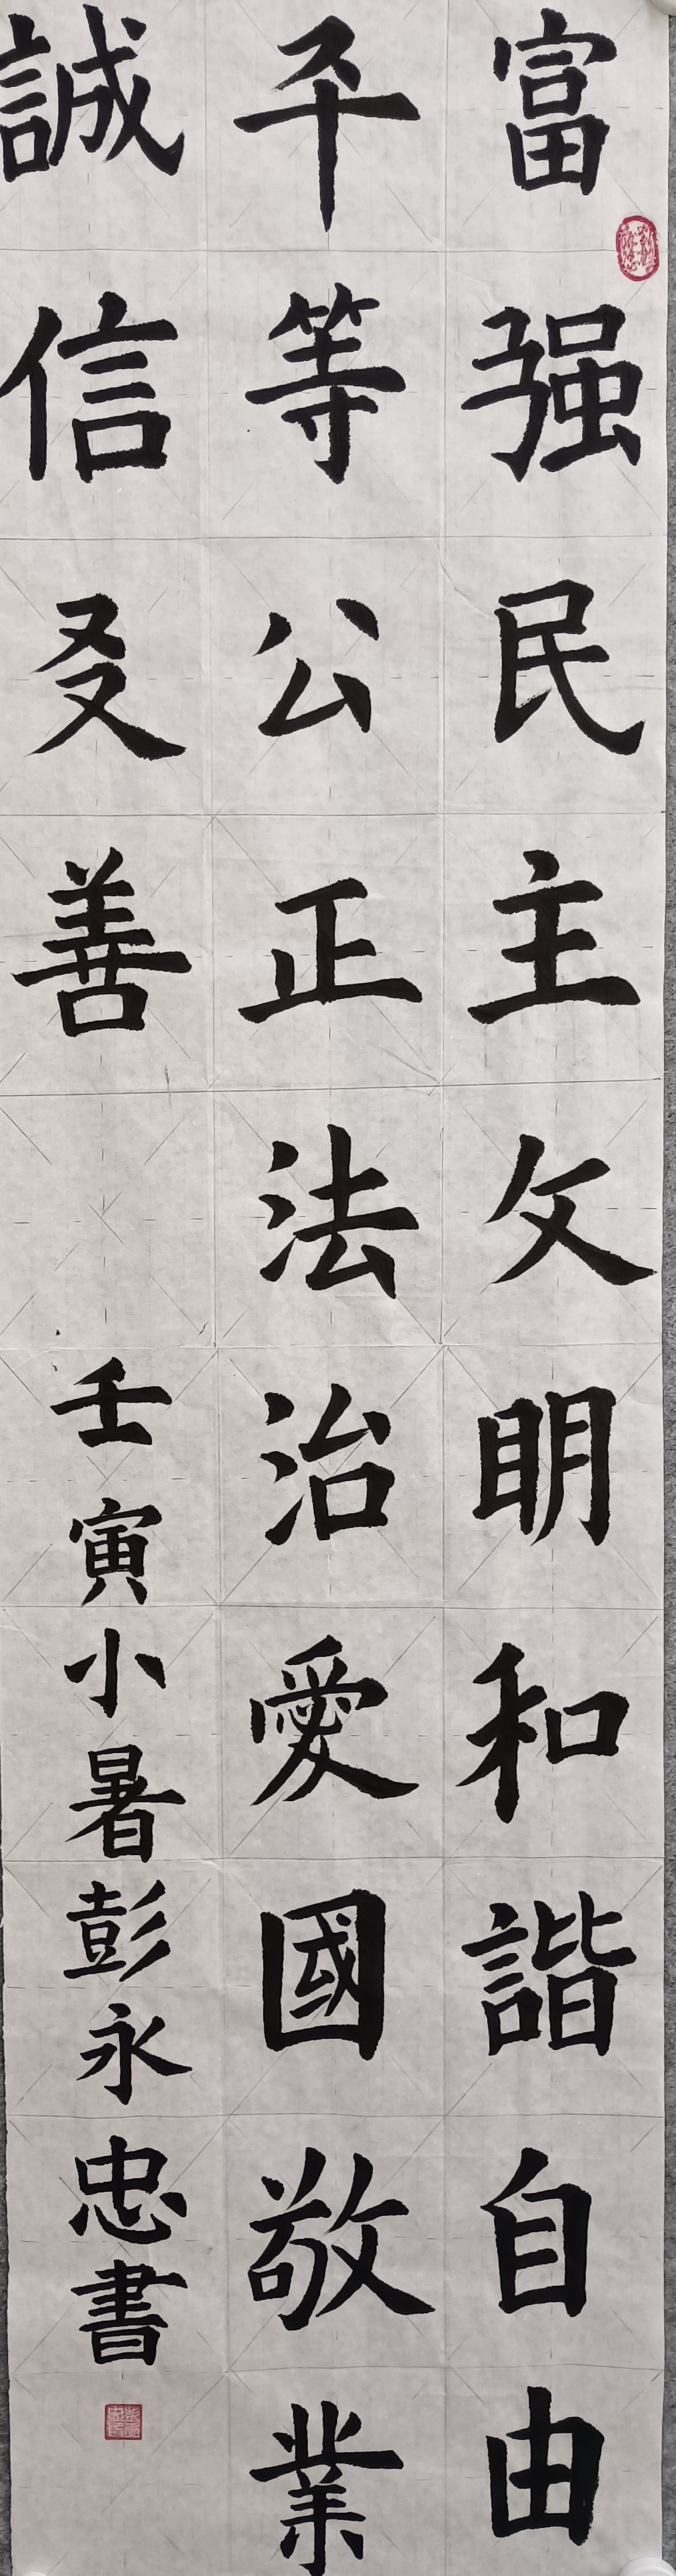 富强民主文明和諧自由
平等公正法治愛國敬業
誠信友善
壬寅小暑彭永忠書